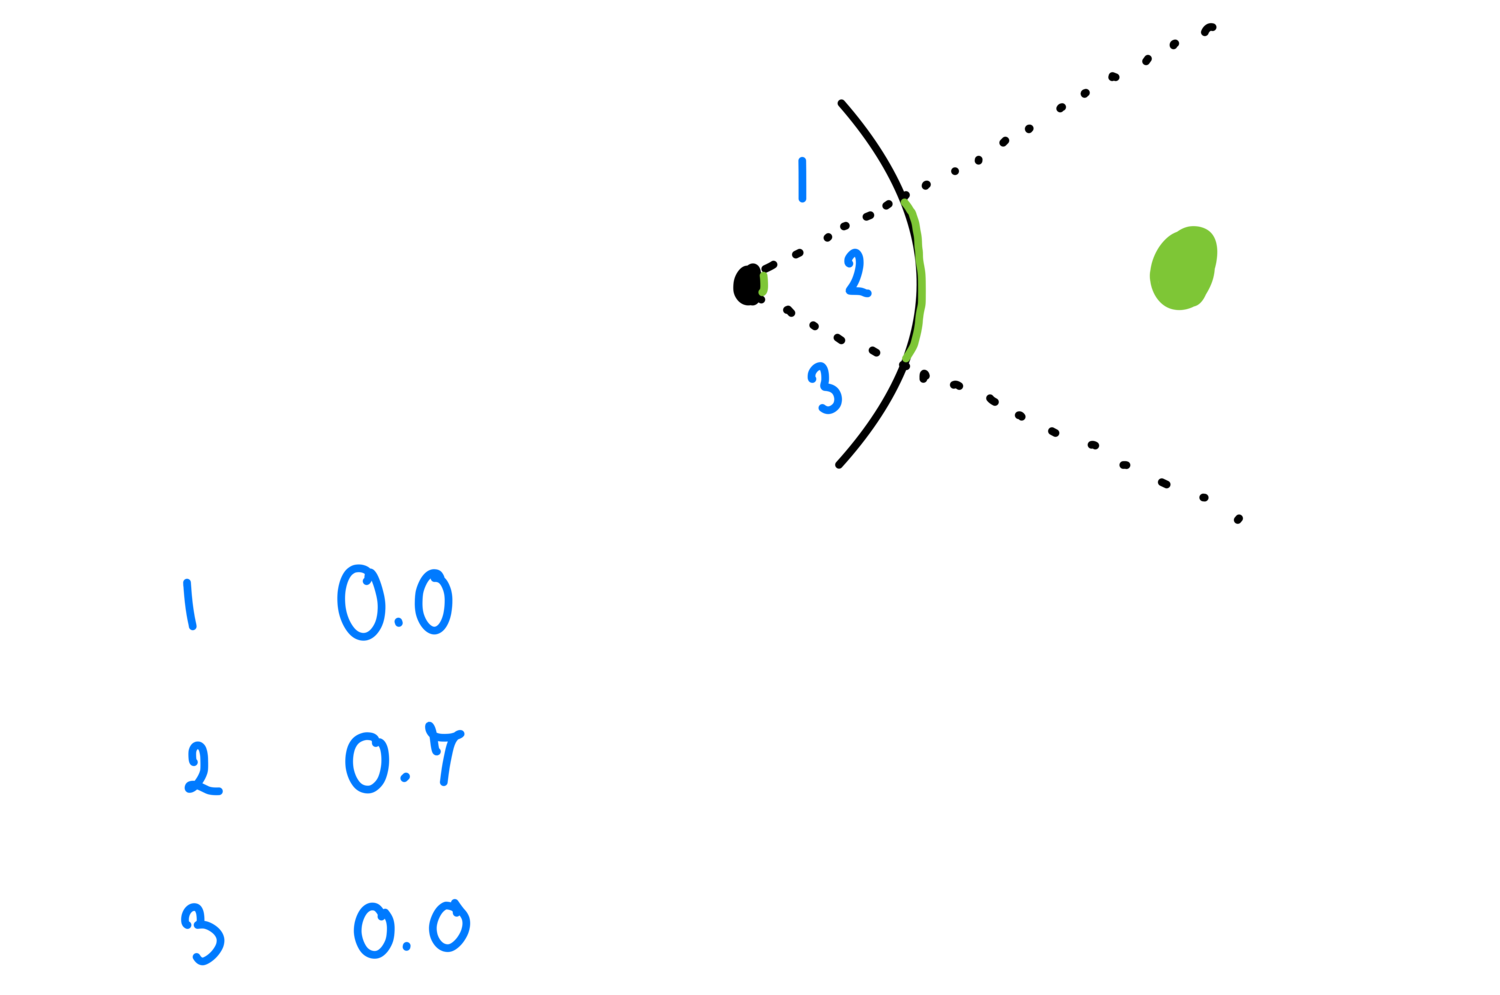 1
2
3
1 0.0
2 0.7
3 0.0